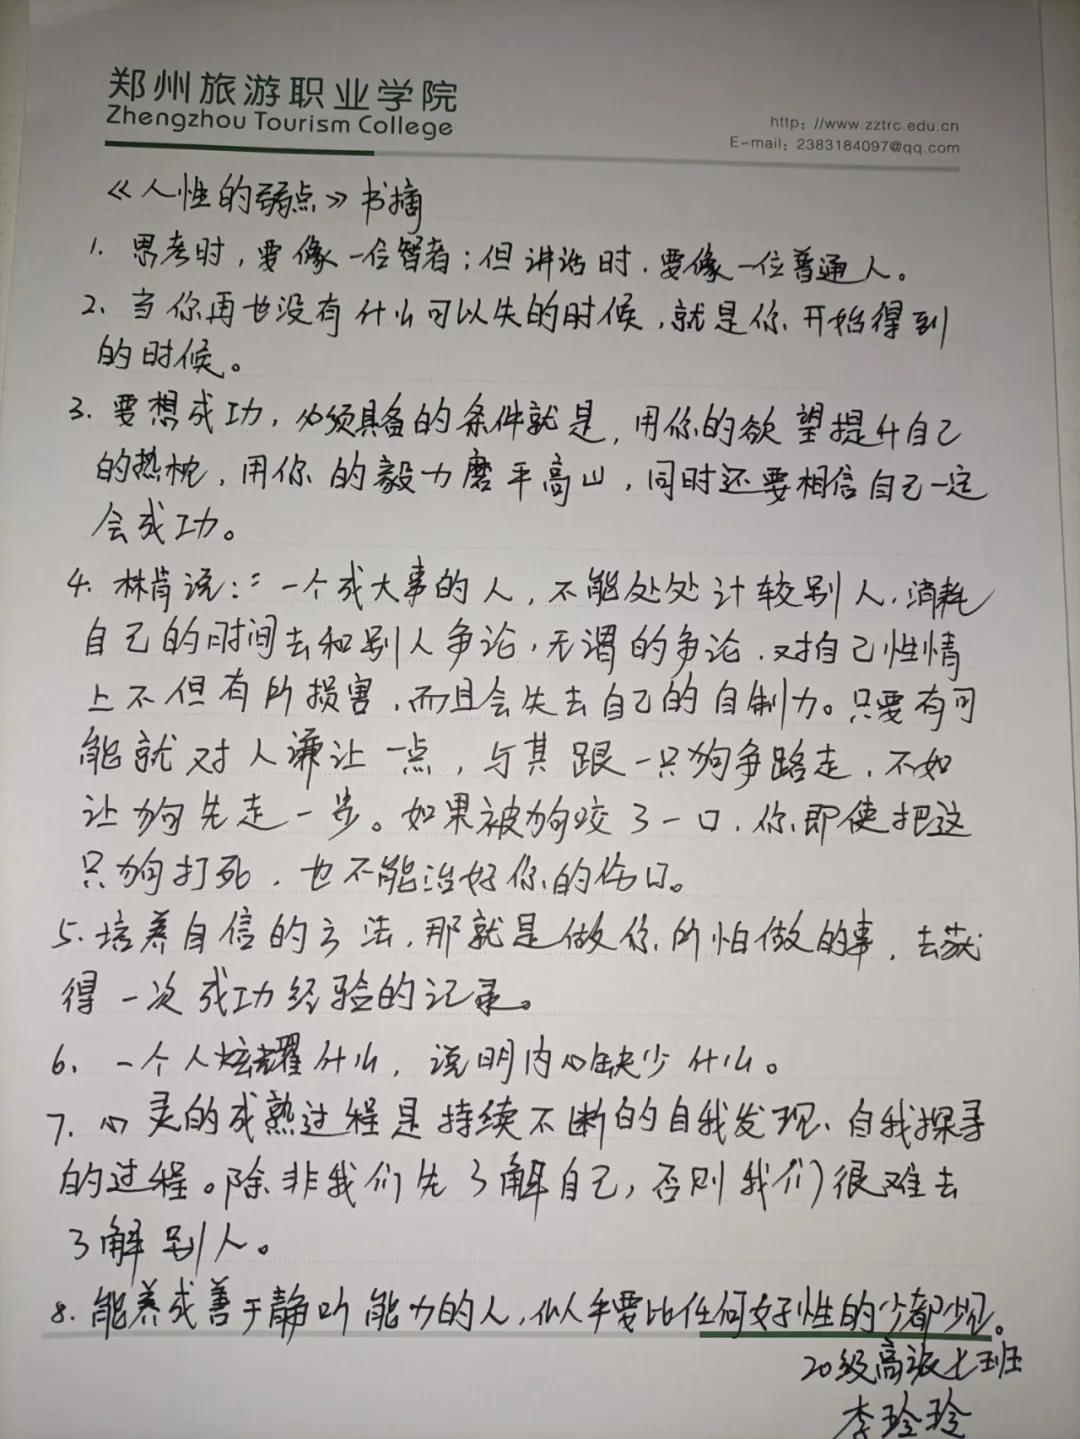 郑州旅游职业学院
Zhengzhou Tourism College
http: //www.zztrc.edu.cn
E-mail: 2383184097@qq.com
《人性的弱点》书摘
1. 思考时，要像一位智者；但讲话时，要像一位普通人。
2、当你再也没有什么可以失的时候，就是你开始得到
的时候。
3. 要想成功，必须具备的条件就是，用你的欲望提升自己
的热忱，用你的毅力磨平高山，同时还要相信自己一定
会成功。
4. 林肯说：一个成大事的人，不能处处计较别人，消耗
自己的时间去和别人争论，无谓的争论，对自己性情
上不但有所损害，而且会失去自己的自制力。只要有可
能就对人谦让一点，与其跟一只狗争路走，不如
让狗先走一步。如果被狗咬了一口，你即使把这
只狗打死，也不能治好你的伤口。
5. 培养自信的方法，那就是做你所怕做的事，去获
得一次成功经验的记录。
6、一个人炫耀什么，说明内心缺少什么。
7、心灵的成熟过程是持续不断的自我发现、自我探寻
的过程。除非我们先了解自己，否则我们很难去
了解别人。
8. 能养成善于静听能力的人，似乎要比任何好性的少都少见。
20级高旅七班
李玲玲